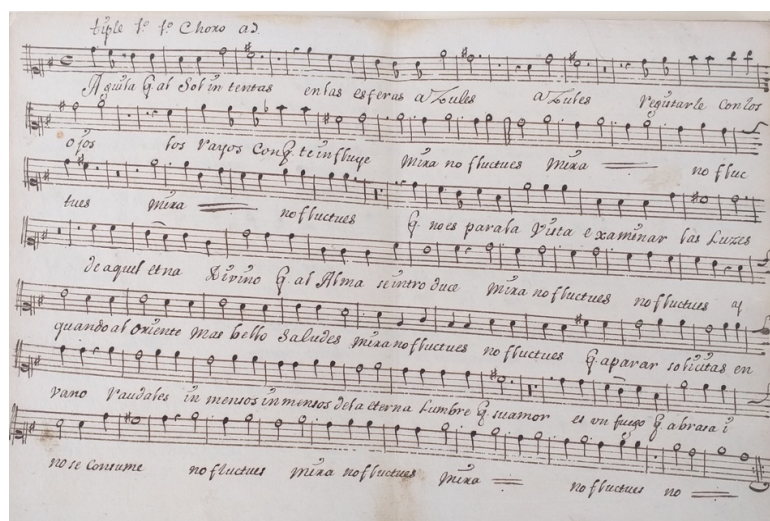 tiple 1º 1º Choro a2.
Aguila q̃ al Sol in tentas en las esferas aZules aZules registarle con los
ojos los rayos con q̃ te influye mira no fluctues mira no fluc
tues mira no fluctues q̃ no es para la vista examinar las Luzes
de aquel etna Divino q̃ al Alma se introduce mira no fluctues no fluctues
quando al oriente mas bello Saludes mira no fluctues no fluctues q̃ aparar solicitas en
vano raudales in mensos in mensos de la eterna Lumbre q̃ su amor es un fuego q̃ abrasa i
no se Consume no fluctues mira no fluctues mira no fluctues no